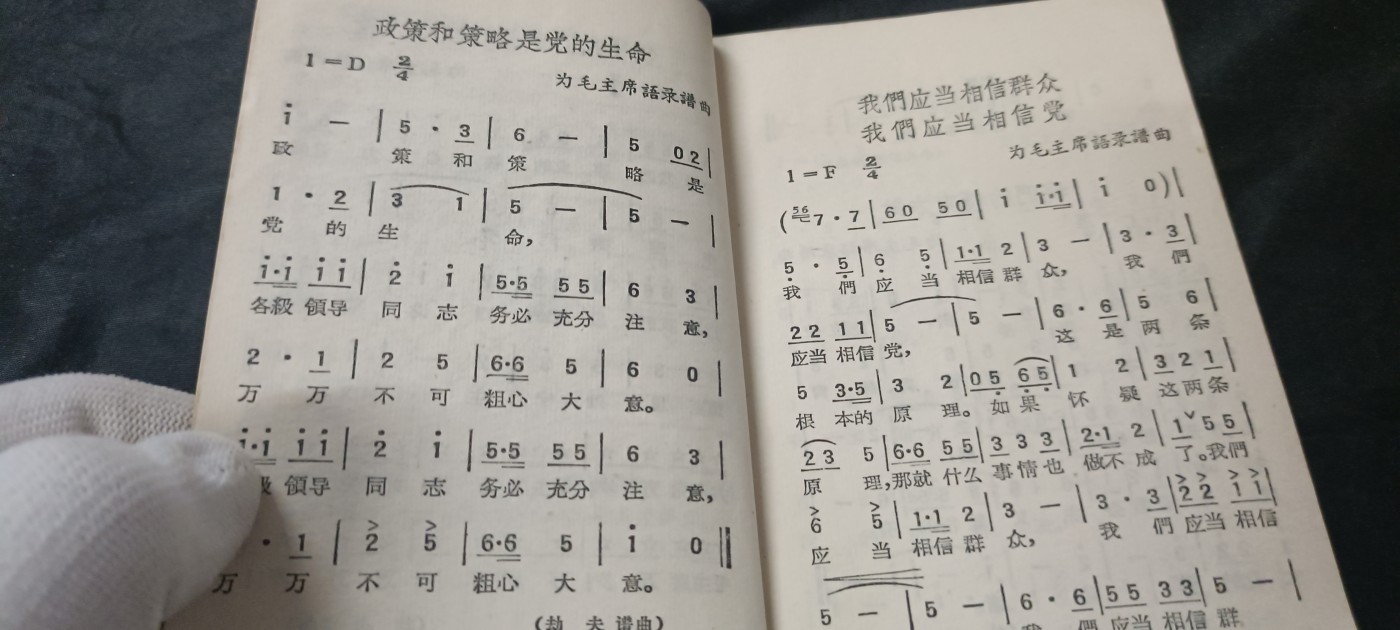 政策和策略是党的生命
1=D 2/4
为毛主席語录譜曲
i — | 5 · 3 | 6 — | 5 0 2 |
政 策 和 策 略 是
1 · 2 | 3 1 | 5 — | 5 — |
党 的 生 命,
i·i i i | 2 i | 5·5 5 5 | 6 3 |
各級 領导 同 志 务必 充分 注 意,
2 · 1 | 2 5 | 6·6 5 | 6 0 |
万 万 不 可 粗心 大 意。
i·i i i | 2 i | 5·5 5 5 | 6 3 |
級 領导 同 志 务必 充分 注 意,
· 1 | 2 5 | 6·6 5 | i 0 ‖
万 万 不 可 粗心 大 意。
(劫 夫 譜曲)
我們应当相信群众
我們应当相信党
为毛主席語录譜曲
1=F 2/4
(56 7 · 7 | 6 0 5 0 | i i·i | i 0) |
5 · 5 | 6 5 | 1·1 2 | 3 — | 3 · 3 |
我 們 应 当 相信 群 众, 我 們
2 2 1 1 | 5 — | 5 — | 6 · 6 | 5 6 |
应当 相信 党, 这 是 两 条
5 3·5 | 3 2 | 0 5 6 5 | 1 2 | 3 2 1 |
根 本的 原 理。 如 果 怀 疑 这两条
2 3 5 | 6·6 5 5 | 3 3 3 | 2·1 2 | 1 5 5 |
原 理,那就 什么 事情也 做不 成 了。我們
6 5 | 1·1 2 | 3 — | 3 · 3 | 2 2 1 1 |
应 当 相信 群 众, 我 們 应当 相信
5 — | 5 — | 6 · 6 | 5 5 3 3 | 5 — |
我 們 应当 相信 群